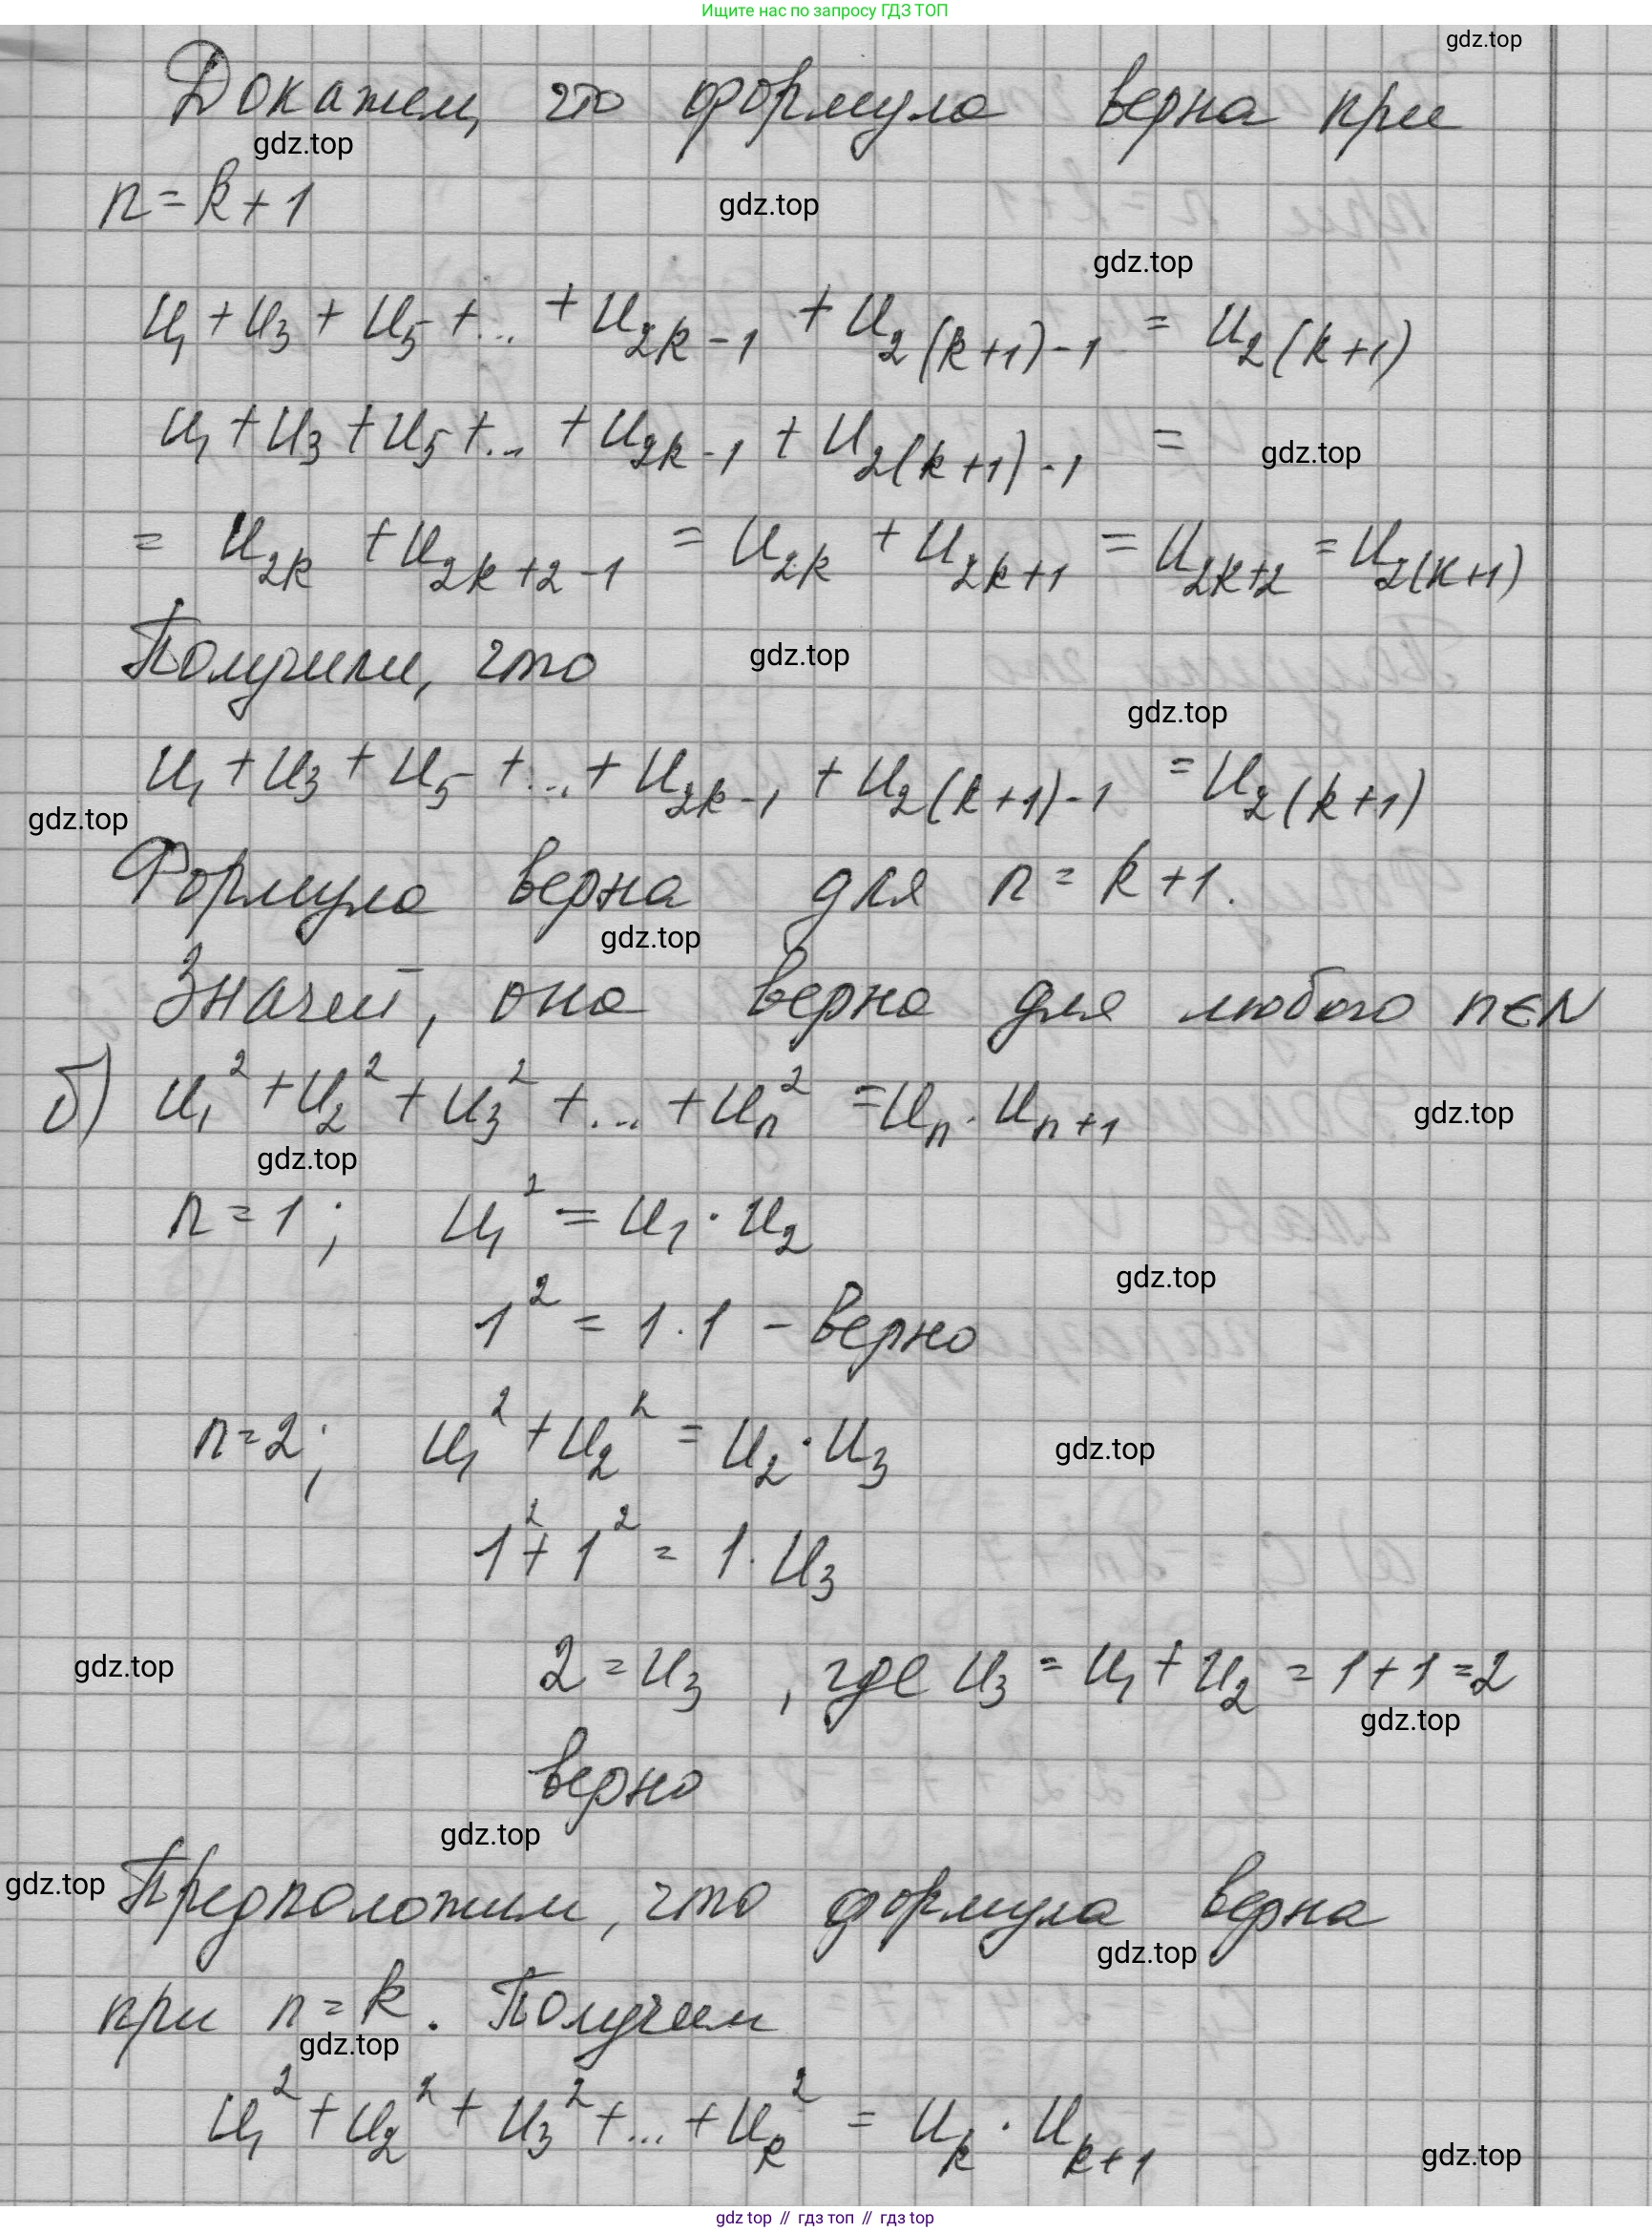 Ищите нас по запросу ГДЗ ТОП
gdz.top
Докажем, что формула верна при
gdz.top
n = k + 1
gdz.top
gdz.top
u₁ + u₃ + u₅ + ... + u₂ₖ₋₁ + u₂₍ₖ₊₁₎₋₁ = u₂₍ₖ₊₁₎
u₁ + u₃ + u₅ + ... + u₂ₖ₋₁ + u₂₍ₖ₊₁₎₋₁ =
gdz.top
= u₂ₖ + u₂ₖ₊₂₋₁ = u₂ₖ + u₂ₖ₊₁ = u₂ₖ₊₂ = u₂₍ₖ₊₁₎
Получили, что
gdz.top
gdz.top
u₁ + u₃ + u₅ + ... + u₂ₖ₋₁ + u₂₍ₖ₊₁₎₋₁ = u₂₍ₖ₊₁₎
gdz.top
Формула верна для n = k + 1.
gdz.top
Значит, она верна для любого n∈N
б) u₁² + u₂² + u₃² + ... + uₙ² = uₙ · uₙ₊₁
gdz.top
gdz.top
n = 1; u₁² = u₁ · u₂
gdz.top
1² = 1 · 1 – верно
n = 2; u₁² + u₂² = u₂ · u₃
gdz.top
1² + 1² = 1 · u₃
gdz.top
2 = u₃, где u₃ = u₁ + u₂ = 1 + 1 = 2
gdz.top
верно
gdz.top
gdz.top
Предположим, что формула верна
gdz.top
при n = k. Получим
gdz.top
u₁² + u₂² + u₃² + ... + uₖ² = uₖ · uₖ₊₁
gdz.top
gdz top // гдз топ // гдз top